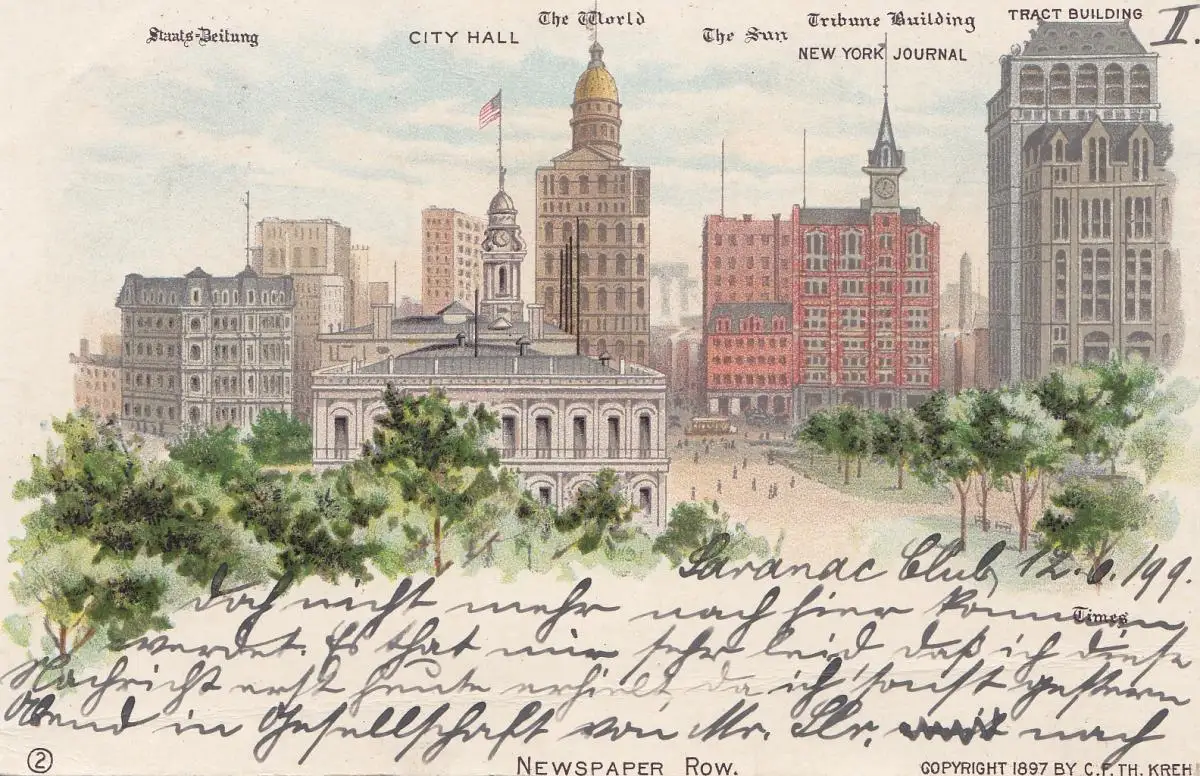 Staats-Zeitung
CITY HALL
The World
The Sun
Tribune Building
NEW YORK JOURNAL
TRACT BUILDING
II.
Saranac Club, 12.6.199.
doch nicht mehr nach hier kommen
Times
werdet. Es that mir sehr leid daß ich diese
Nachricht erst heute erhielt, da ich sonst gestern
Abend in Gesellschaft von Mr. nach
2
NEWSPAPER ROW.
COPYRIGHT 1897 BY C. F. TH. KREH